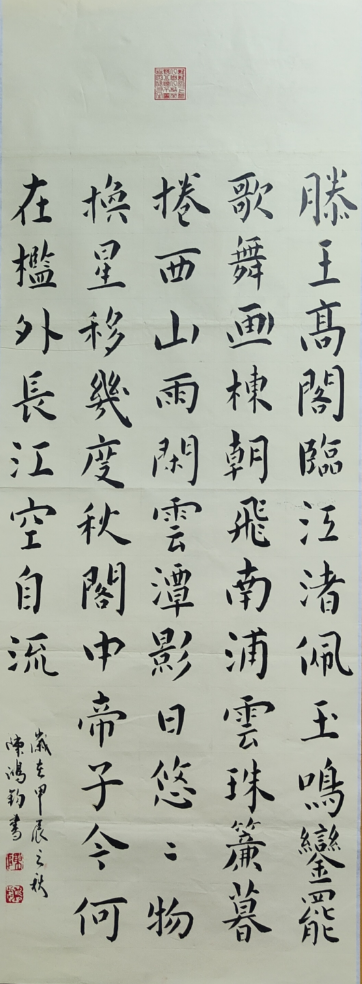 滕王高閣臨江渚佩玉鳴鑾罷
歌舞画棟朝飛南浦雲珠簾暮
捲西山雨閑雲潭影日悠〻物
換星移幾度秋閣中帝子今何
在檻外長江空自流
歲在甲辰之秋
陳鴻鈞書